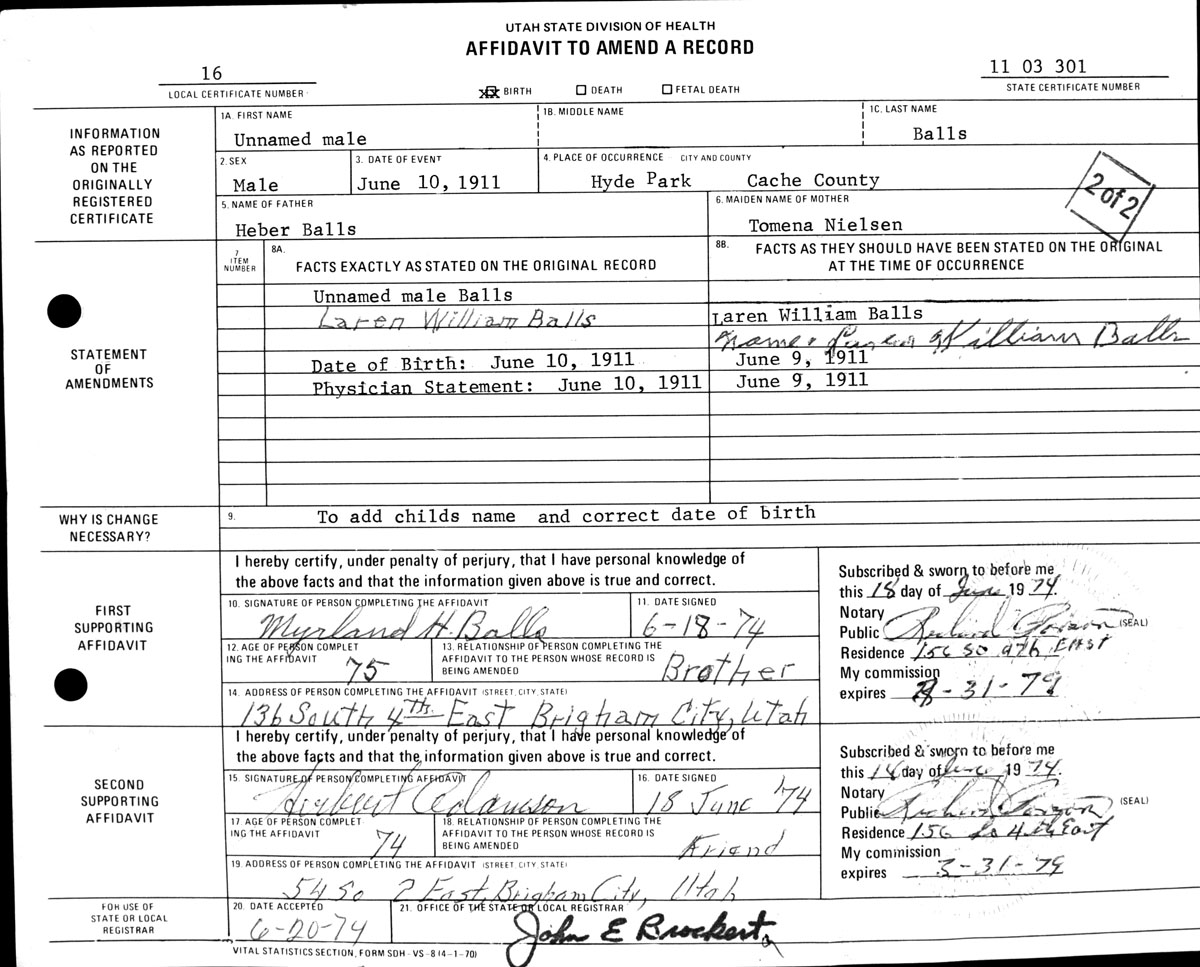 UTAH STATE DIVISION OF HEALTH
AFFIDAVIT TO AMEND A RECORD
16
LOCAL CERTIFICATE NUMBER
XX BIRTH
DEATH
FETAL DEATH
11 03 301
STATE CERTIFICATE NUMBER
INFORMATION
AS REPORTED
ON THE
ORIGINALLY
REGISTERED
CERTIFICATE
1A. FIRST NAME
Unnamed male
1B. MIDDLE NAME
1C. LAST NAME
Balls
2. SEX
Male
3. DATE OF EVENT
June 10, 1911
4. PLACE OF OCCURRENCE CITY AND COUNTY
Hyde Park Cache County
2 of 2
5. NAME OF FATHER
Heber Balls
6. MAIDEN NAME OF MOTHER
Tomena Nielsen
STATEMENT
OF
AMENDMENTS
7
ITEM
NUMBER
8A.
FACTS EXACTLY AS STATED ON THE ORIGINAL RECORD
8B. FACTS AS THEY SHOULD HAVE BEEN STATED ON THE ORIGINAL
AT THE TIME OF OCCURRENCE
Unnamed male Balls
Laren William Balls
Laren William Balls
William Balls
Date of Birth: June 10, 1911
June 9, 1911
Physician Statement: June 10, 1911
June 9, 1911
WHY IS CHANGE
NECESSARY?
9. To add childs name and correct date of birth
FIRST
SUPPORTING
AFFIDAVIT
I hereby certify, under penalty of perjury, that I have personal knowledge of
the above facts and that the information given above is true and correct.
10. SIGNATURE OF PERSON COMPLETING THE AFFIDAVIT
Myrland H. Balls
11. DATE SIGNED
6-18-74
12. AGE OF PERSON COMPLET
ING THE AFFIDAVIT
75
13. RELATIONSHIP OF PERSON COMPLETING THE
AFFIDAVIT TO THE PERSON WHOSE RECORD IS
BEING AMENDED
Brother
14. ADDRESS OF PERSON COMPLETING THE AFFIDAVIT (STREET, CITY, STATE)
136 South 4th East Brigham City, Utah
Subscribed & sworn to before me
this 18 day of June 1974.
Notary
Public (SEAL)
Residence 156 So East
My commission
expires -31-79
SECOND
SUPPORTING
AFFIDAVIT
I hereby certify, under penalty of perjury, that I have personal knowledge of
the above facts and that the information given above is true and correct.
15. SIGNATURE OF PERSON COMPLETING AFFIDAVIT
Herbert Adamson
16. DATE SIGNED
18 June '74
17. AGE OF PERSON COMPLET
ING THE AFFIDAVIT
74
18. RELATIONSHIP OF PERSON COMPLETING THE
AFFIDAVIT TO THE PERSON WHOSE RECORD IS
BEING AMENDED
Friend
19. ADDRESS OF PERSON COMPLETING THE AFFIDAVIT (STREET, CITY, STATE)
54 So 2 East, Brigham City, Utah
Subscribed & sworn to before me
this day of June 1974.
Notary
Public (SEAL)
Residence 156 So 4th East
My commission
expires 3-31-79
FOR USE OF
STATE OR LOCAL
REGISTRAR
20. DATE ACCEPTED
6-20-74
21. OFFICE OF THE STATE OR LOCAL REGISTRAR
John E Brockert
VITAL STATISTICS SECTION, FORM SDH-VS-8 (4-1-70)